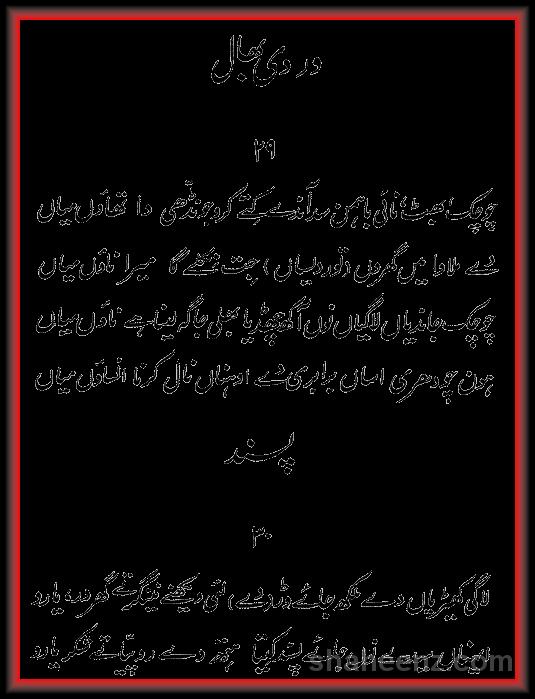 ور دی بھال
۲۹
چوچک؛ بھٹ؛ نائی باہمن سد آندے کِتے کرو جو نڈھی دا تھاؤں میاں
دے ملاوا میں گھروں ٹور دیساں، جت جمکے گا میرا ناؤں میاں
چوچک جاندیاں لاگیاں نوں آکھ چھڈیا بھلی جاگہ لینا ہے ناؤں میاں
ہون چودھری اساں برابری دے اوہناں نال کرنا انساؤں میاں
پسند
۳۰
لاگی کھیڑیاں دے ملکھ جائے وڑدے، لئی ویکھنے گھر در یارو
اہناں سیدے نوں جائے پسند کیتا دے روپیا تے شکر یارو
shaheenz.com